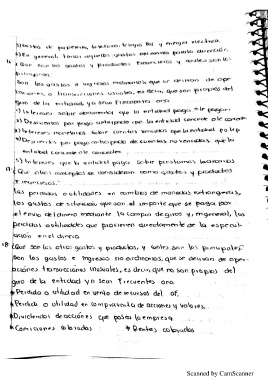 3) Gastos de papelería, teléfono, luz y energía eléctrica
4) En general todos aquellos gastos necesarios para la dirección
16 ¿Que son los gastos y productos financieros y cuáles son los
principales?
Son los gastos e ingresos ordinarios, que se derivan de ope-
raciones o transacciones usuales, es decir, que son propios del
giro de la entidad ya sean frecuentes o no
1) Intereses sobre documentos que la entidad paga
2) Descuentos por pago anticipado que la entidad concede a
3) Intereses moratorios sobre cuentas vencidas que la entidad
4) Descuentos por pago anticipado de cuentas no vencidas, que la
entidad concede
5) Intereses que la entidad paga sobre prestamos bancarios
17 ¿Que otros conceptos se consideran como gastos y productos
financieros?
Las perdidas o utilidades en cambios de monedas extranjeras,
los gastos de situación que son el importe que se paga por
el envío del dinero mediante la compra de giros y, en general, las
perdidas o utilidades que provienen directamente de la especul-
ación en el dinero
18 ¿Que son los otros gastos y productos, y cuáles son los principales?
Son los gastos e ingresos no ordinarios, que se derivan de oper-
aciónes transacciónes inusuales, es decir, que no son propios del
giro de la entidad ya sean frecuentes o no
* Perdida o utilidad en venta de recursos del af.
* Perdida o utilidad en compraventa de acciones y valores.
* Dividendos de acciónes que posea la empresa
* Comisiones cobradas * Rentas cobradas
Scanned by CamScanner